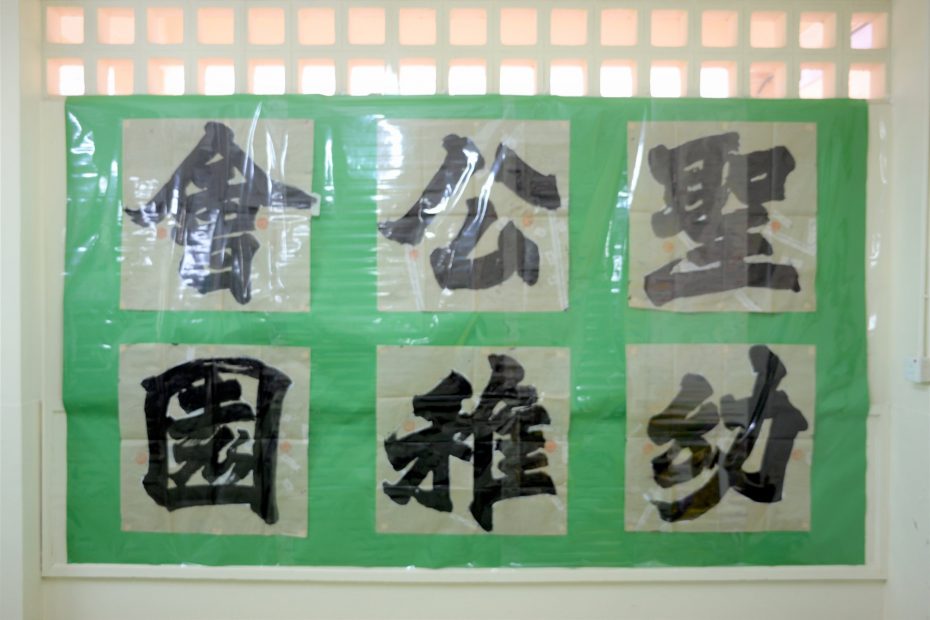 聖公會
幼稚園